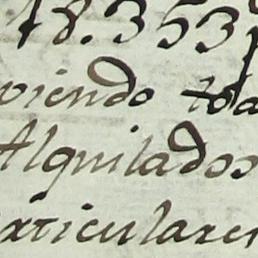 18.353
viendo toa
Alquilados
articulares